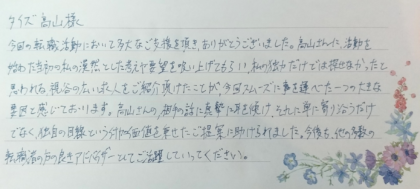 タイズ 高山様
今回の転職活動において多大なご支援を頂き、ありがとうございました。高山さんに、活動を
始めた当初の私の漠然とした考えや要望を吸い上げてもらい、私の独力だけでは探せなかったと
思われる視谷の広い求人をご紹介頂けたことが、今回スムーズに事を運べた一つの大きな
要因と感じております。高山さんの 御相談に真摯に耳を傾け、それに単に寄り沿うだけ
でなく 独自の目線という付加価値を乗せたご提案に助けられました。今後も、他の多数の
転職者の方の良きアドバイザーとしてご活躍していってください。